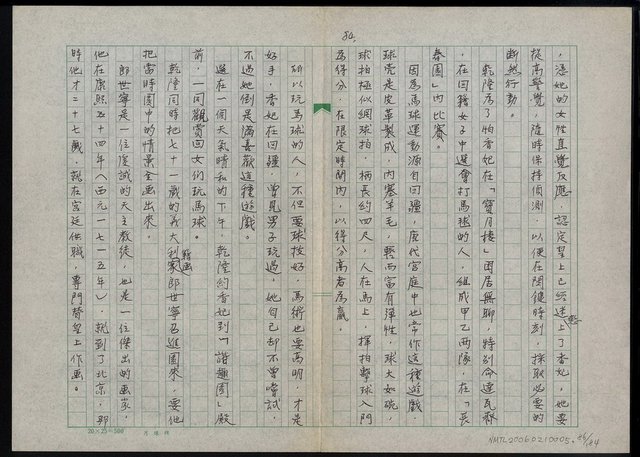 84.
，憑她的女性直覺反應，認定皇上已經迷上了香妃，她要
提高警覺，隨時保持偵測，以便在関健時刻，採取必要的
断然行動。
乾隆為了怕香妃在「寶月楼」困居無聊，特别命達瓦齊
，在回籍女子中選會打馬球的人，組成甲乙兩隊，在「長
春園」内比賽。
因為馬球運動源自回疆，唐代宮庭中也常作這種遊戲，
球壳是皮革製成，内塞羊毛，輕而富有弹性，球大如碗，
球拍極似網球拍，柄長約四尺，人在馬上，揮拍擊球入門
為得分，在限定時間内，以得分高者為贏。
所以玩馬球的人，不但要球技好，馬術也要高明，才是
好手，香妃在回疆，曾見男子玩過，她自己却不曾嘗試，
不過她倒是滿喜歡這種遊戲。
選在一個天氣晴和的下午，乾隆約香妃到「諧趣園」殿
前，一同觀賞回女们玩馬球。
乾隆同時把七十一歲的義大利籍画家郎世寧召進園來，要他
把當時園中的情景全画出來。
郎世寧是一位虔誠的天主教徒，也是一位傑出的画家，
他在康熙五十四年（西元一七一五年），就到了北京，那
時他才二十七歲，就在宮廷供職，專門替皇上作画。
20×25=500
NMTL20060210005.86/184